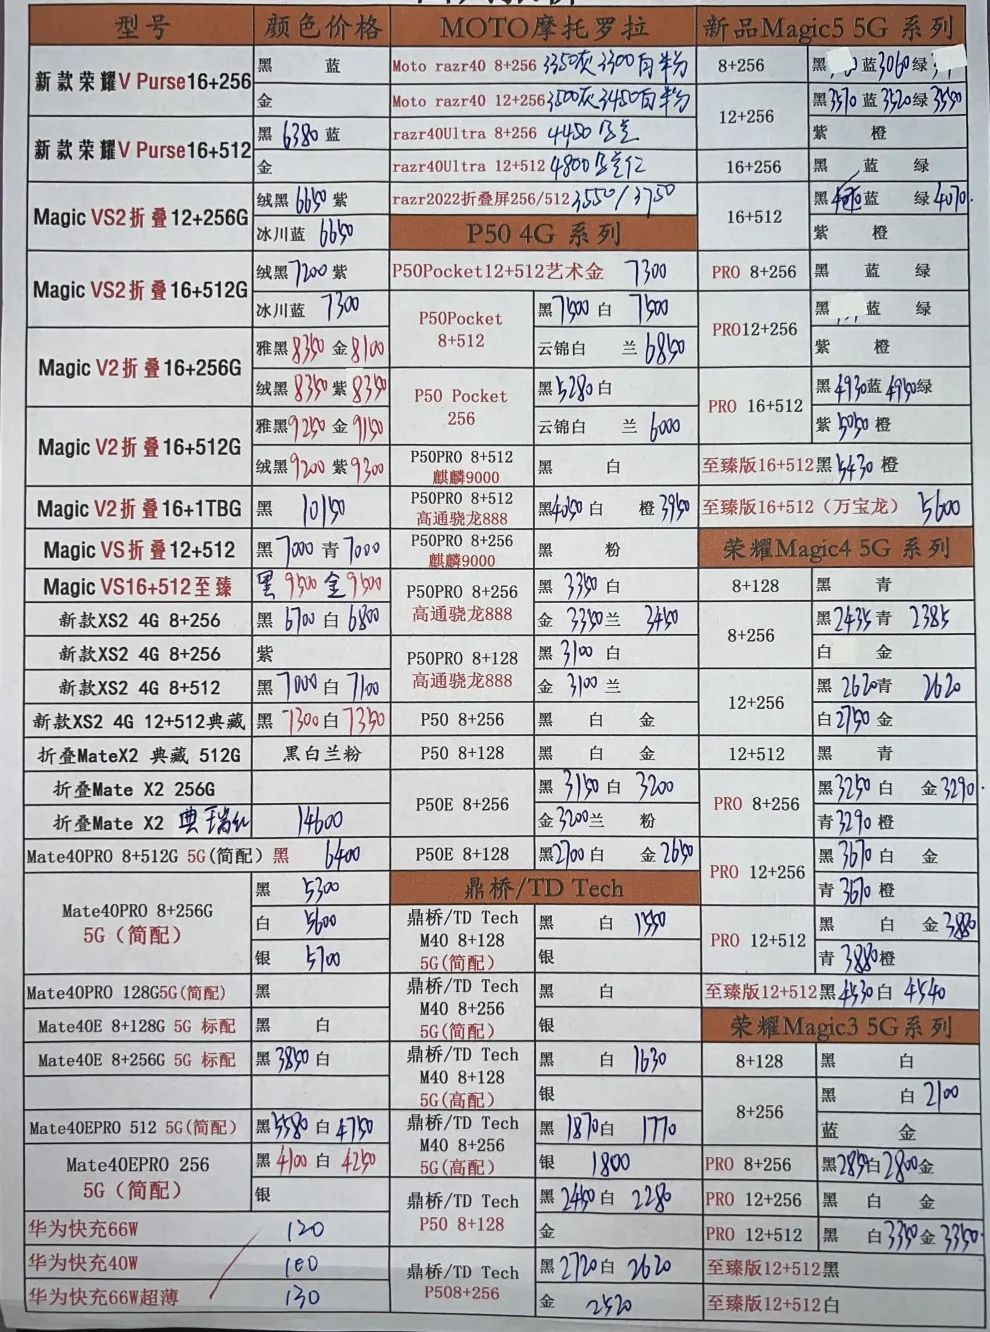 型号 颜色价格
新款荣耀V Purse16+256 黑 蓝
金
新款荣耀V Purse16+512 黑 6380 蓝
金
Magic VS2折叠12+256G 绒黑 6650 紫
冰川蓝 6650
Magic VS2折叠16+512G 绒黑 7200 紫
冰川蓝 7300
Magic V2折叠16+256G 雅黑 8350 金 8100
绒黑 8350 紫 8350
Magic V2折叠16+512G 雅黑 9250 金 9150
绒黑 9200 紫 9300
Magic V2折叠16+1TBG 黑 10150
Magic VS折叠12+512 黑 7000 青 7000
Magic VS16+512至臻 黑 9500 金
新款XS2 4G 8+256 黑 6700 白 6800
新款XS2 4G 8+256 紫
新款XS2 4G 8+512 黑 7000 白 7100
新款XS2 4G 12+512典藏 黑 7300 白 7350
折叠MateX2 典藏 512G 黑白兰粉
折叠Mate X2 256G
折叠Mate X2 典 瑞红 14600
Mate40PRO 8+512G 5G(简配)黑 6400
Mate40PRO 8+256G 5G（简配） 黑 5300
白 5600
银 5700
Mate40PRO 128G5G(简配) 黑
Mate40E 8+128G 5G 标配 黑 白
Mate40E 8+256G 5G 标配 黑 3850 白
Mate40EPRO 512 5G(简配) 黑 5580 白 4750
Mate40EPRO 256 5G（简配） 黑 4100 白 4250
银
华为快充66W 120
华为快充40W 100
华为快充66W超薄 130
MOTO摩托罗拉
Moto razr40 8+256 3350灰 3300白 半粉
Moto razr40 12+256 3500灰 3450白 半粉
razr40Ultra 8+256 4450
razr40Ultra 12+512 4800
razr2022折叠屏256/512 3550/3750
P50 4G 系列
P50Pocket12+512艺术金 7300
P50Pocket 8+512 黑 7500 白 7500
云锦白 兰 6850
P50 Pocket 256 黑 5280 白
云锦白 兰 6000
P50PRO 8+512 麒麟9000 黑 白
P50PRO 8+512 高通骁龙888 黑 4050 白 橙 3950
P50PRO 8+256 麒麟9000 黑 粉
P50PRO 8+256 高通骁龙888 黑 3350 白
金 3350 兰 3450
P50PRO 8+128 高通骁龙888 黑 3100 白
金 3100 兰
P50 8+256 黑 白 金
P50 8+128 黑 白 金
P50E 8+256 黑 3150 白 3200
金 3200 兰 粉
P50E 8+128 黑 2700 白 金 2650
鼎桥/TD Tech
鼎桥/TD Tech M40 8+128 5G(简配) 黑 白 1550
银
鼎桥/TD Tech M40 8+256 5G(简配) 黑 白
银
鼎桥/TD Tech M40 8+128 5G(高配) 黑 白 1630
银
鼎桥/TD Tech M40 8+256 5G(高配) 黑 1870 白 1770
银 1800
鼎桥/TD Tech P50 8+128 黑 2450 白 2280
金
鼎桥/TD Tech P508+256 黑 2720 白 2620
金 2520
新品Magic5 5G 系列
8+256 黑 蓝 3060 绿
12+256 黑 3570 蓝 3520 绿 3550
紫 橙
16+256 黑 蓝 绿
16+512 黑 蓝 绿 4070
紫 橙
PRO 8+256 黑 蓝 绿
PRO12+256 黑 蓝 绿
紫 橙
PRO 16+512 黑 4930 蓝 4950 绿
紫 5050 橙
至臻版16+512 黑 5430 橙
至臻版16+512（万宝龙） 5600
荣耀Magic4 5G 系列
8+128 黑 青
8+256 黑 2435 青 2385
白 金
12+256 黑 2620 青 2620
白 2750 金
12+512 黑 青
PRO 8+256 黑 3250 白 金 3290
青 3290 橙
PRO 12+256 黑 3670 白 金
青 3670 橙
PRO 12+512 黑 白 金 3880
青 3880 橙
至臻版12+512 黑 4530 白 4540
荣耀Magic3 5G系列
8+128 黑 白
8+256 黑 白 2100
蓝 金
PRO 8+256 黑 2850 白 2800 金
PRO 12+256 黑 白 金
PRO 12+512 黑 白 3350 金 3350
至臻版12+512黑
至臻版12+512白